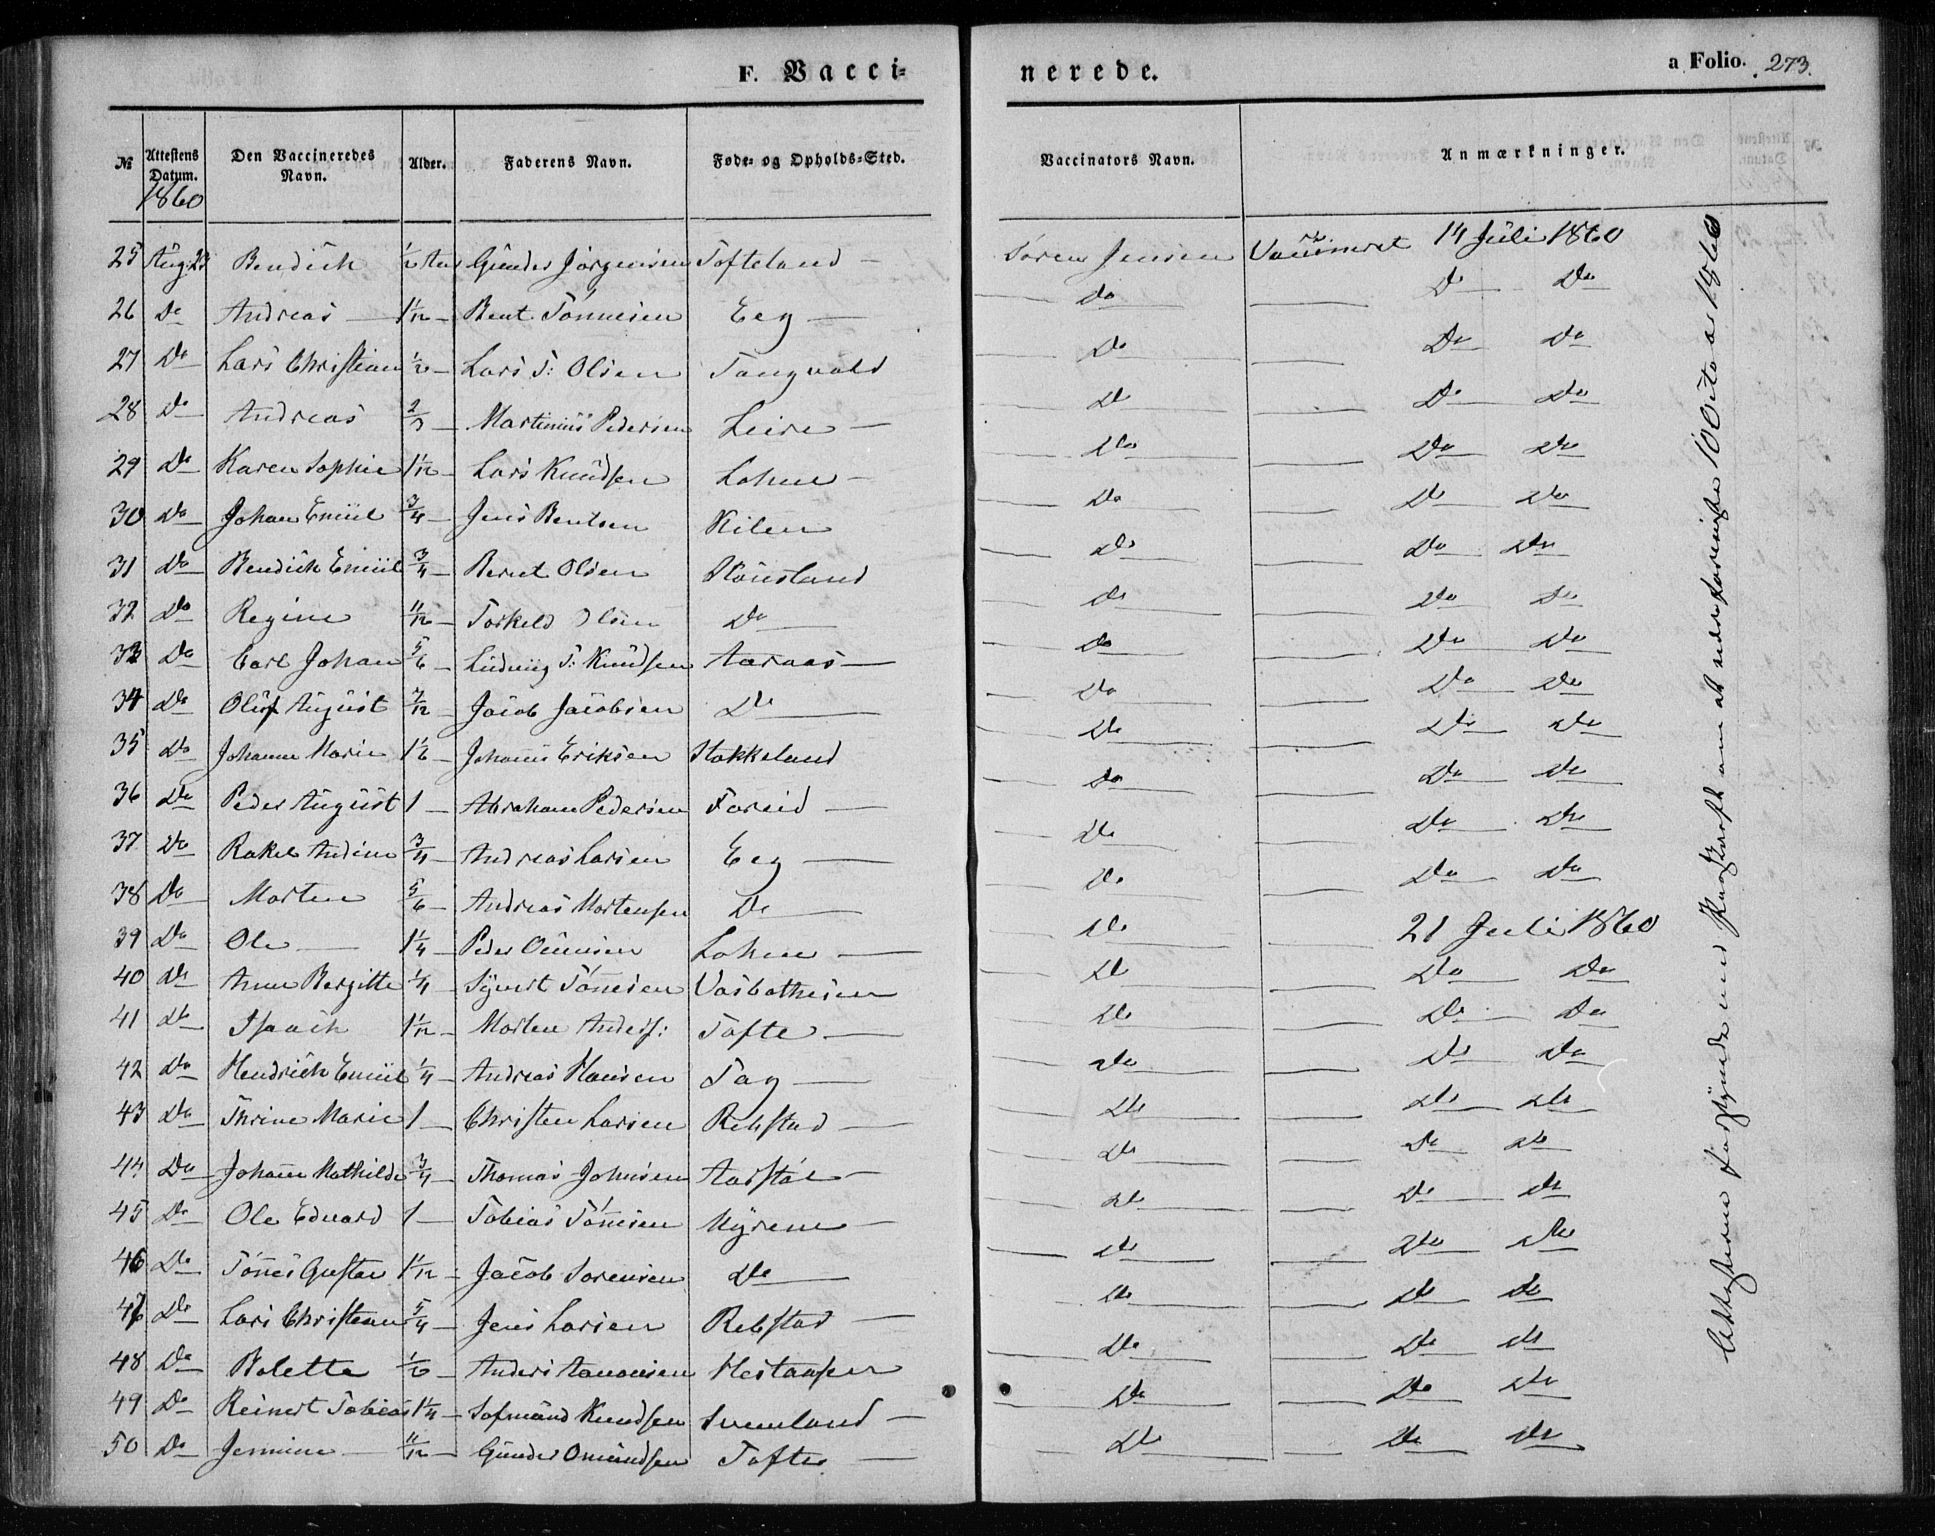 F. Vacci=
nerede.
a Folio. 273.
№ Attestens Datum. Den Vaccineredes Navn. Alder. Faderens Navn. Føde- og Opholds-Sted. Vaccinators Navn. Anmærkninger.
1860
25 Aug: 23 Bendich ½ Aar Gunder Jörgensen Tofteland — Sören Jensen Vaccineret 14 Juli 1860
26 Do Andreas — 1 1/12 — Bent Tönnesen Eeg — Do Do Do
27 Do Lars Christian ½ — Lars T: Olsen Tangvald Do Do Do
28 Do Andreas 2/3 — Martinius Pedersen Leire — Do Do Do
29 Do Karen Sophie 1 1/12 — Lars Knudsen Lohne — Do Do Do
30 Do Johan Emiil 3/4 — Jens Bentsen Kilen Do Do Do
31 Do Bendich Emiil 3/4 — Berut Olsen Do Do Do
32 Do Regine 11/12 — Torkeld Olsen Do Do Do Do
33 Do Carl Johan 5/6 — Ludvig T: Knudsen Aaraas — Do Do Do
34 Do Oluf August 7/12 — Jacob Jacobsen Do Do Do Do
35 Do Johanne Marie 1 1/6 — Johans Eriksen Stokkeland Do Do Do
36 Do Peder August 1 — Abraham Pedersen Foreid — Do Do Do
37 Do Rakel Andine 3/4 — Andreas Larsen Eeg — Do Do Do
38 Do Morten 5/6 — Andreas Mortensen Do Do Do Do
39 Do Ole — 1 1/4 — Peder Lohne — Do 21 Juli 1860
40 Do Anne Bergitte 1/4 — Syvert Tönnesen Vasbotheien Do Do Do
41 Do Isaach 1 1/12 — Morten Anders: Tofte — Do Do Do
42 Do Hendrich Emiil 1/4 — Andreas Hansen Tag — Do Do Do
43 Do Thrine Marie 1 — Christen Larsen Rebstad — Do Do Do
44 Do Johanne Mathilde 3/4 — Thomas Johnsen Aarstöl — Do Do Do
45 Do Ole Edvard 1 — Tobias Tönnesen Myrene — Do Do Do
46 Do Tönnes Gustav 1 1/12 — Jacob Sörensen Do Do Do Do
47 Do Lars Christian 5/4 — Jens Larsen Rebstad — Do Do Do
48 Do Bolette Anders Aanonsen Do Do Do
49 Do Reinert Tobias 1 1/4 — Sofmund Knudsen — Do Do Do
50 Do Jennine — 11/12 — Gunder Omundsen Tofte — Do Do Do
Attesterne forsynede med